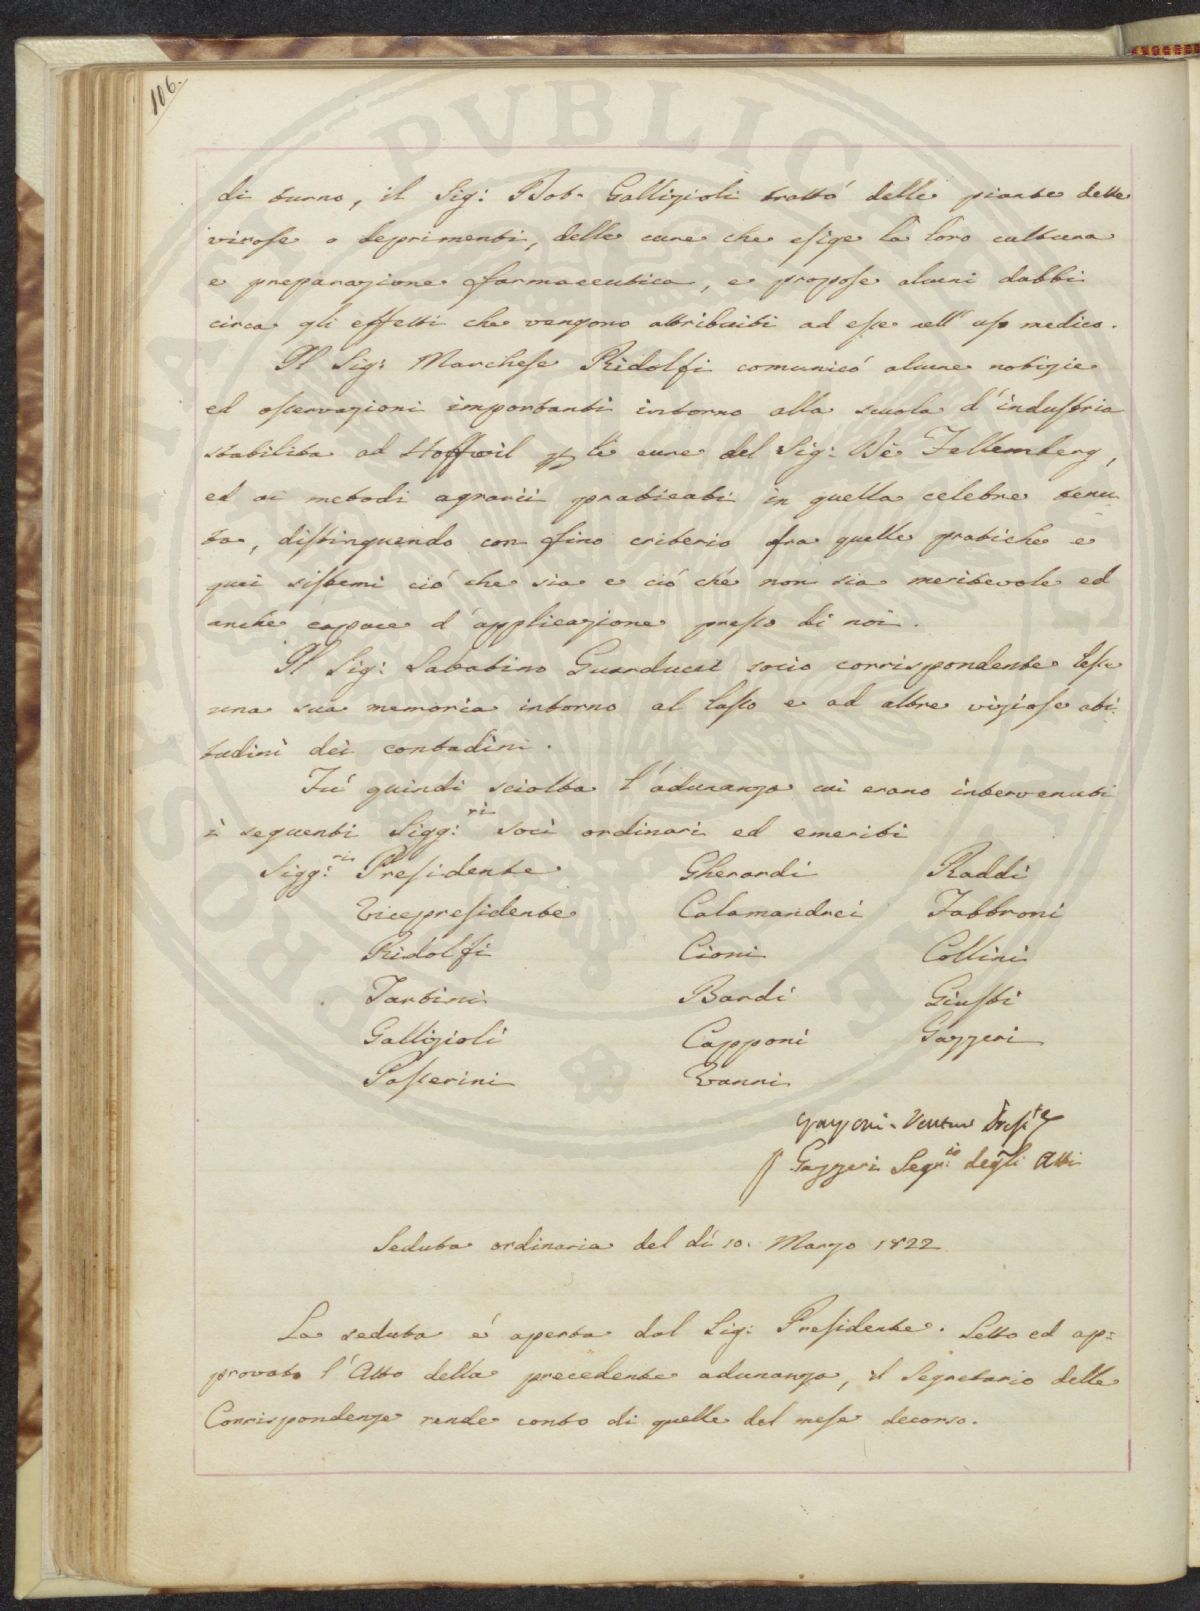 106.
di turno, il Sig: Dot. Gallizioli trattó delle piante dette
virose o deprimenti, delle cure che esige la loro cultura
e preparazione farmaceutica, e propose alcuni dubbi
circa gli effetti che vengono attribuiti ad esse nell'uso medico.
Il Sig: Marchese Ridolfi comunicó alcune notizie
ed osservazioni importanti intorno alla scuola d'industria
stabilita ad Hoffwil le cure del Sig: De Fellemberg,
ed ai metodi agrarii praticati in quella celebre tenu-
ta, distinguendo con fino criterio fra quelle pratiche e
quei sistemi ció che sia e ció che non sia meritevole ed
anche capace d'applicazione presso di noi.
Il Sig: Sabatino Guarducci socio corrispondente lesse
una sua memoria intorno al lusso e ad altre viziose abi:
tudini dei contadini.
Fú quindi sciolta l'adunanza cui erano intervenuti
i seguenti Sigg:ri soci ordinari ed emeriti
Sigg:ri Presidente Gherardi Raddi
Vicepresidente Calamandrei Fabbroni
Ridolfi Cioni Collini
Tartini Bardi Giusti
Gallizioli Capponi Gazzeri
Passerini Vanni
Garzoni-Venturi Presi:te
Gazzeri Segr:io degli Atti
Seduta ordinaria del dí 10. Marzo 1822
La seduta é aperta dal Sig: Presidente. Letto ed ap=
provato l'Atto della precedente adunanza, il Segretario delle
Corrispondenze rende conto di quelle del mese decorso.